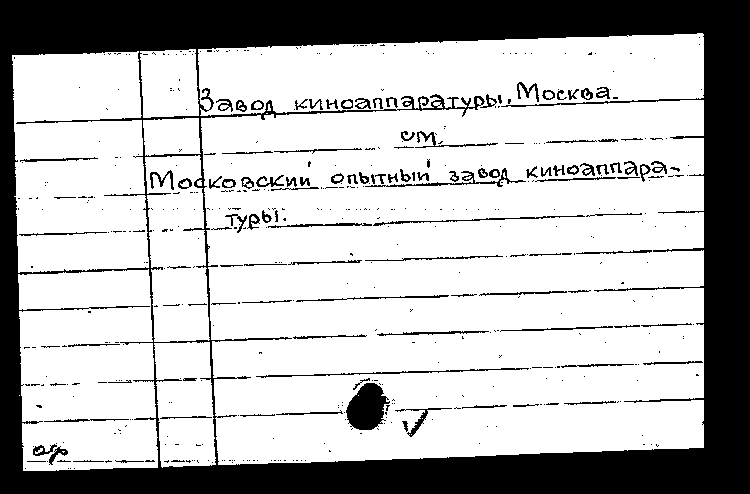 Завод киноаппаратуры, Москва.
см.
Московский опытный завод киноаппара-
туры.